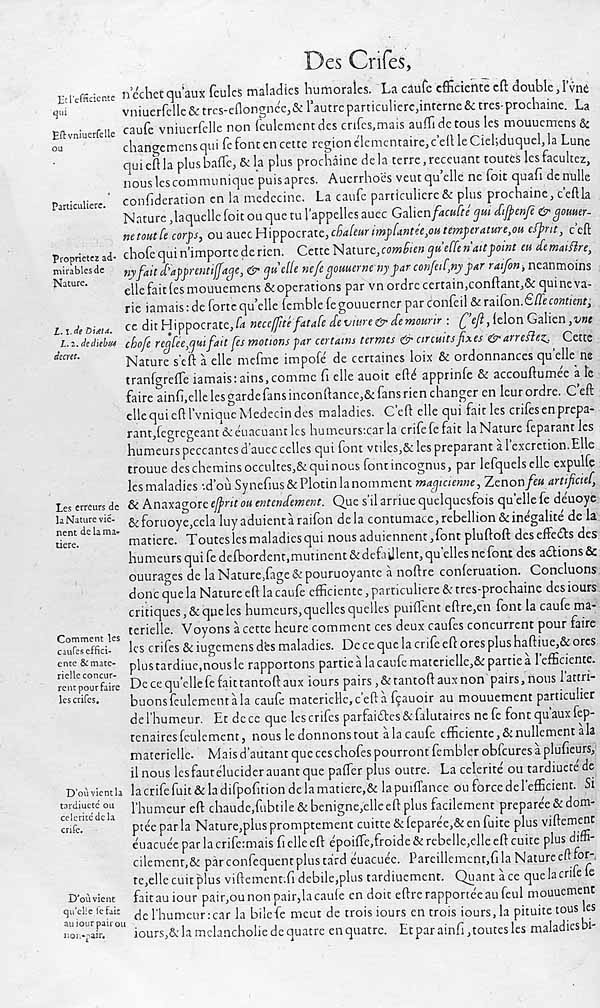 Des Criſes,
n'échet qu'aux ſeules maladies humorales. La cauſe efficiente eſt double, l'vne
vniuerſelle & tres-eſlongnée, & l'autre particuliere, interne & tres-prochaine. La
cauſe vniuerſelle non ſeulement des criſes, mais auſſi de tous les mouuemens &
changemens qui ſe font en cette region elementaire, c'eſt le Ciel; duquel, la Lune
qui eſt la plus baſſe, & la plus prochaine de la terre, receuant toutes les facultez,
nous les communique puis apres. Auerrhoës veut qu'elle ne ſoit quaſi de nulle
conſideration en la medecine. La cauſe particuliere & plus prochaine, c'eſt la
Nature, laquelle ſoit ou que tu l'appelles auec Galien faculté qui diſpenſe & gouuer-
ne tout le corps, ou auec Hippocrate, chaleur implantée, ou temperature, ou eſprit, c'eſt
choſe qui n'importe de rien. Cette Nature, combien qu'elle n'ait point eu de maiſtre,
ny fait d'apprentiſſage, & qu'elle ne ſe gouuerne ny par conſeil, ny par raiſon, neanmoins
elle fait ſes mouuemens & operations par vn ordre certain, conſtant, & qui ne va-
rie iamais: de ſorte qu'elle ſemble ſe gouuerner par conſeil & raiſon. Elle contient,
ce dit Hippocrate, la neceſſité fatale de viure & de mourir: C'eſt, ſelon Galien, vne
choſe reglée, qui fait ſes motions par certains termes & circuits fixes & arreſtez. Cette
Nature s'eſt à elle meſme impoſé de certaines loix & ordonnances qu'elle ne
tranſgreſſe iamais: ains, comme ſi elle auoit eſté apprinſe & accouſtumée à le
faire ainſi, elle les garde ſans inconſtance, & ſans rien changer en leur ordre. C'eſt
elle qui eſt l'vnique Medecin des maladies. C'eſt elle qui fait les criſes en prepa-
rant, ſegregeant & éuacuant les humeurs: car la criſe ſe fait la Nature ſeparant les
humeurs peccantes d'auec celles qui ſont vtiles, & les preparant à l'excretion. Elle
trouue des chemins occultes, & qui nous ſont incognus, par leſquels elle expulſe
les maladies: d'où Syneſius & Plotin la nomment magicienne, Zenon feu artificiel,
& Anaxagore eſprit ou entendement. Que s'il arriue quelquesfois qu'elle ſe déuoye
& foruoye, cela luy aduient à raiſon de la contumace, rebellion & inégalité de la
matiere. Toutes les maladies qui nous aduiennent, ſont pluſtoſt des effects des
humeurs qui ſe deſbordent, mutinent & defaillent, qu'elles ne ſont des actions &
ouurages de la Nature, ſage & pouruoyante à noſtre conſeruation. Concluons
donc que la Nature eſt la cauſe efficiente, particuliere & tres-prochaine des iours
critiques, & que les humeurs, quelles quelles puiſſent eſtre, en ſont la cauſe ma-
terielle. Voyons à cette heure comment ces deux cauſes concurrent pour faire
les criſes & iugemens des maladies. De ce que la criſe eſt ores plus haſtiue, & ores
plus tardiue, nous le rapportons partie à la cauſe materielle, & partie à l'efficiente.
De ce qu'elle ſe fait tantoſt aux iours pairs, & tantoſt aux non pairs, nous l'attri-
buons ſeulement à la cauſe materielle, c'eſt à ſçauoir au mouuement particulier
de l'humeur. Et de ce que les criſes parfaictes & ſalutaires ne ſe font qu'aux ſep-
tenaires ſeulement, nous le donnons tout à la cauſe efficiente, & nullement à la
materielle. Mais d'autant que ces choſes pourront ſembler obſcures à pluſieurs,
il nous les faut élucider auant que paſſer plus outre. La celerité ou tardiueté de
la criſe ſuit & la diſpoſition de la matiere, & la puiſſance ou force de l'efficient. Si
l'humeur eſt chaude, ſubtile & benigne, elle eſt plus facilement preparée & dom-
ptée par la Nature, plus promptement cuitte & ſeparée, & en ſuite plus viſtement
éuacuée par la criſe: mais ſi elle eſt époiſſe, froide & rebelle, elle eſt cuite plus diffi-
cilement, & par conſequent plus tard éuacuée. Pareillement, ſi la Nature eſt for-
te, elle cuit plus viſtement: ſi debile, plus tardiuement. Quant à ce que la criſe ſe
fait au iour pair, ou non pair, la cauſe en doit eſtre rapportée au ſeul mouuement
de l'humeur: car la bile ſe meut de trois iours en trois iours, la pituite tous les
iours, & la melancholie de quatre en quatre. Et par ainſi, toutes les maladies bi-
Et l'efficiente
qui
Eſt vniuerſelle
ou
Particuliere.
Proprietez ad-
mirables de
Nature.
L. 1. de Diæta.
L. 2. de diebus
decret.
Les erreurs de
la Nature vié-
nent de la ma-
tiere.
Comment les
cauſes effici-
ente & mate-
rielle concur-
rent pour faire
les criſes.
D'où vient la
tardiueté ou
celerité de la
criſe.
D'où vient
qu'elle ſe fait
au iour pair ou
non-pair.